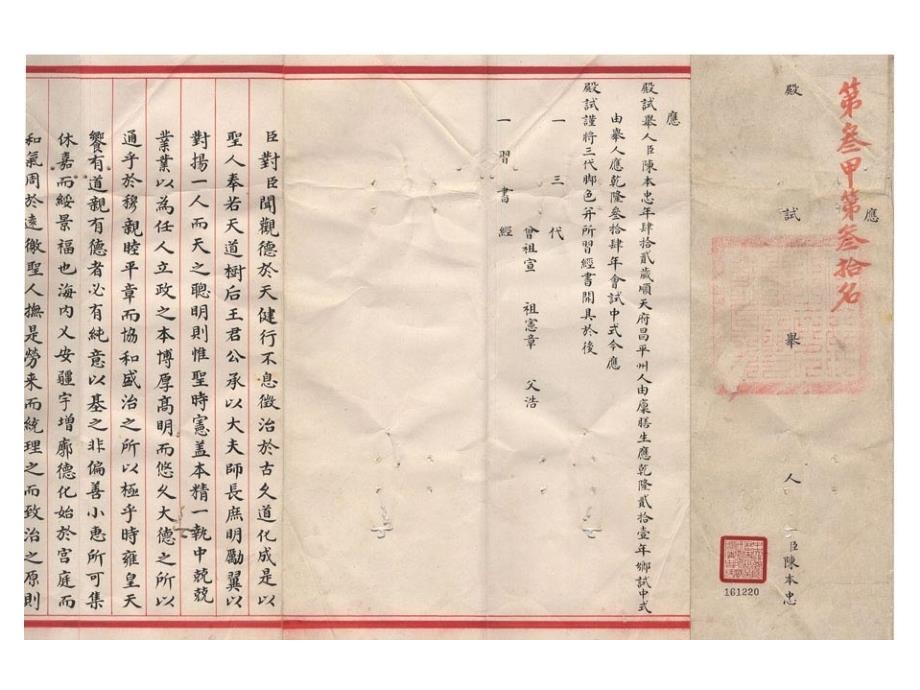 第叁甲第叁拾名
應
殿試舉人臣陳本忠
161220
應
殿試舉人臣陳本忠年肆拾貳歲順天府昌平州人由廩膳生應乾隆貳拾壹年鄉試中式
由舉人應乾隆叁拾肆年會試中式今應
殿試謹將三代脚色并所習經書開具於後
一三代
曾祖宣 祖憲章 父浩
一習書經
臣對臣聞觀德於天健行不息徵治於古久道化成是以
聖人奉若天道樹后王君公承以大夫師長庶明勵翼以
對揚一人而天之聰明則惟聖時憲蓋本精一執中兢兢
業業以為任人立政之本博厚高明而悠久大德之所以
通乎於穆親睦平章而協和盛治之所以極乎時雍皇天
饗有道親有德者必有純意以基之非偏善小惠所可集
休嘉而綏景福也海內乂安疆宇增廓德化始於宮庭而
和氣周於遠徼聖人撫是勞來而統理之而致治之原則